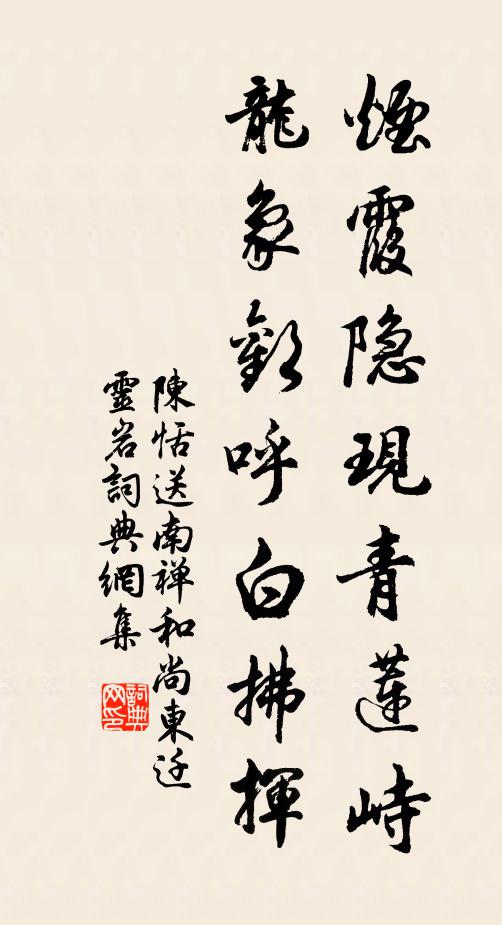 煙霞隐現青蓮峙
龍象歡呼白拂揮
陳恬送南禅和尚東迁
靈岩詞典網集
詞典网印